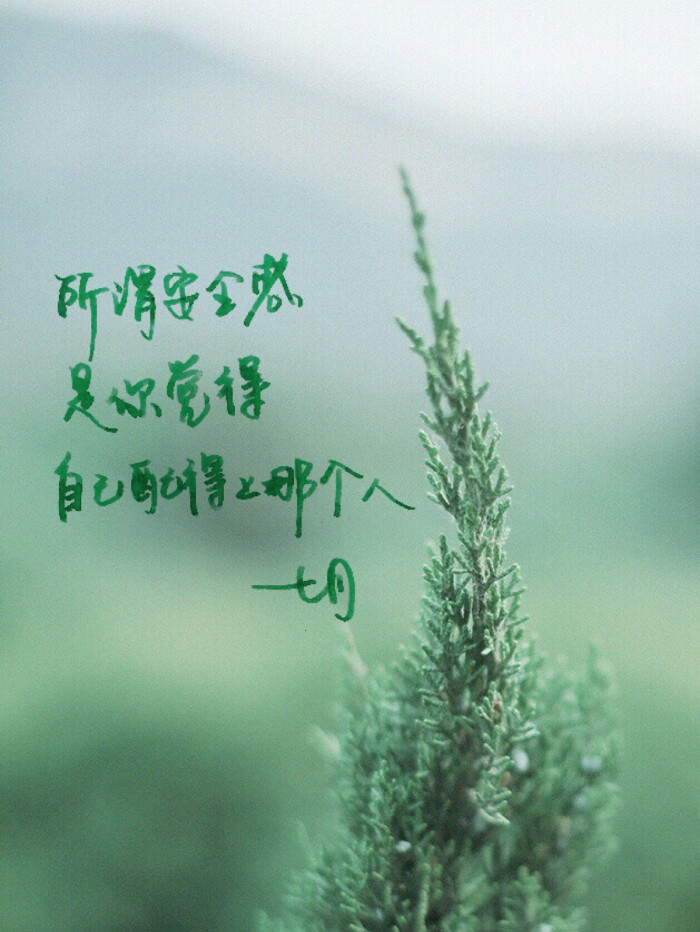 所谓安全感
是你觉得
自己配得上那个人
七月